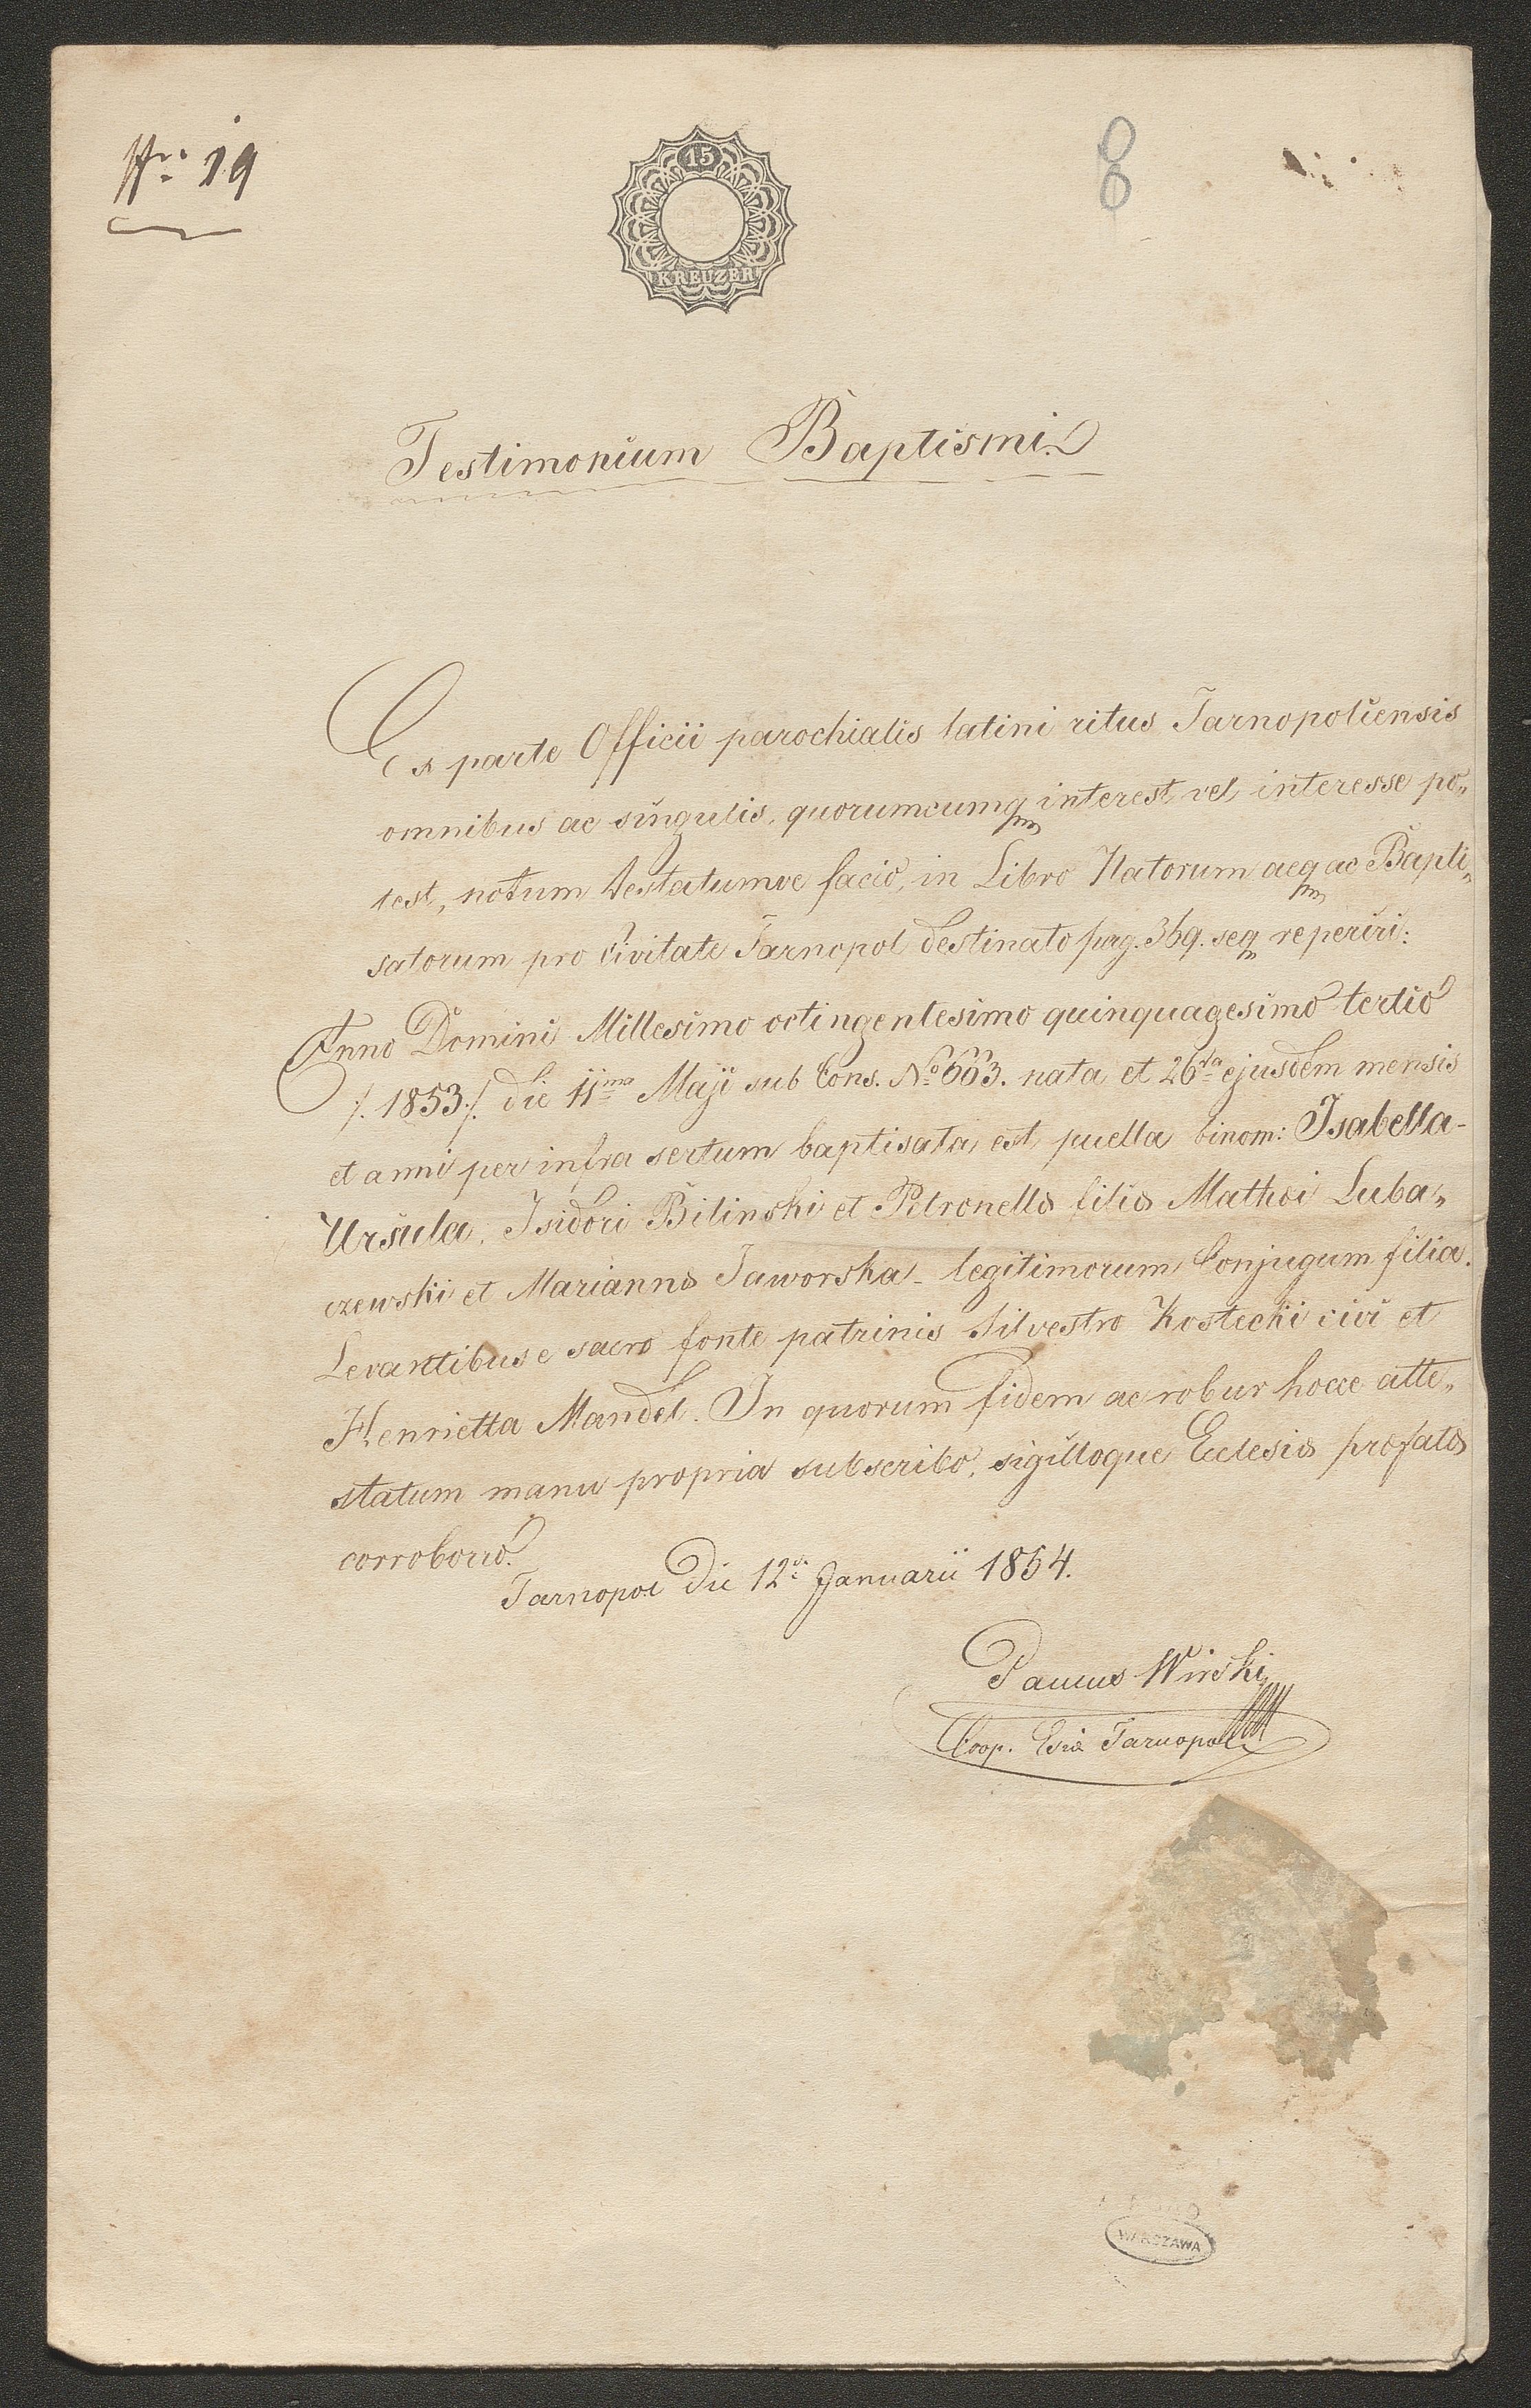 Nr. 19
15
KREUZER
8
Testimonium Baptismi.
Ex parte Officii parochialis latini ritus Tarnopoliensis
omnibus ac singulis, quorumcumq interest vel interesse po„
test, notum testatumve facio, in Libro Natorum aeq ac Bapti„
satorum pro Civitate Tarnopol destinato pag. 369. seq reperiri:
Anno Domini Millesimo octingentesimo quinquagesimo tertio
/. 1853 ./. die 11ma Maji sub Cons. No 663. nata et 26ta ejusdem mensis
et anni per infra sertum baptisata est, puella binom: Isabella-
Ursula, Isidori Bilinski et Petronellæ filiæ Mathæi Luba„
czewski et Mariannæ Jaworska - legitimorum Conjugum filia.
Levantibus e sacro fonte patrinis Silvestro Kostecki civi et
Henrietta Mandel. In quorum fidem ac robur hocce atte„
statum manu propria subscribo, sigilloque Ecclesiæ præfatæ
corroboro.
Tarnopol Die 12a Januarii 1854.
Wirski
Coop. Esiæ Tarnopol
WARSZAWA